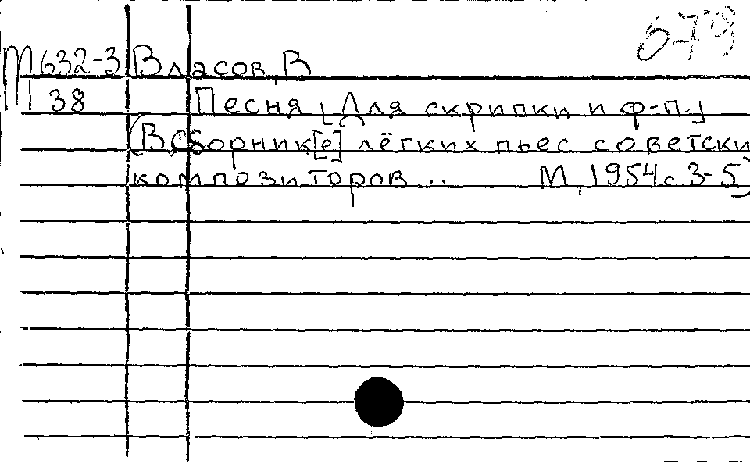 679
М632-3 Власов, В
М 38 Песня [Для скрипки и ф-п.]
(В Сборник[е] лёгких пьес советски
композиторов... М, 1954 с 3-5)